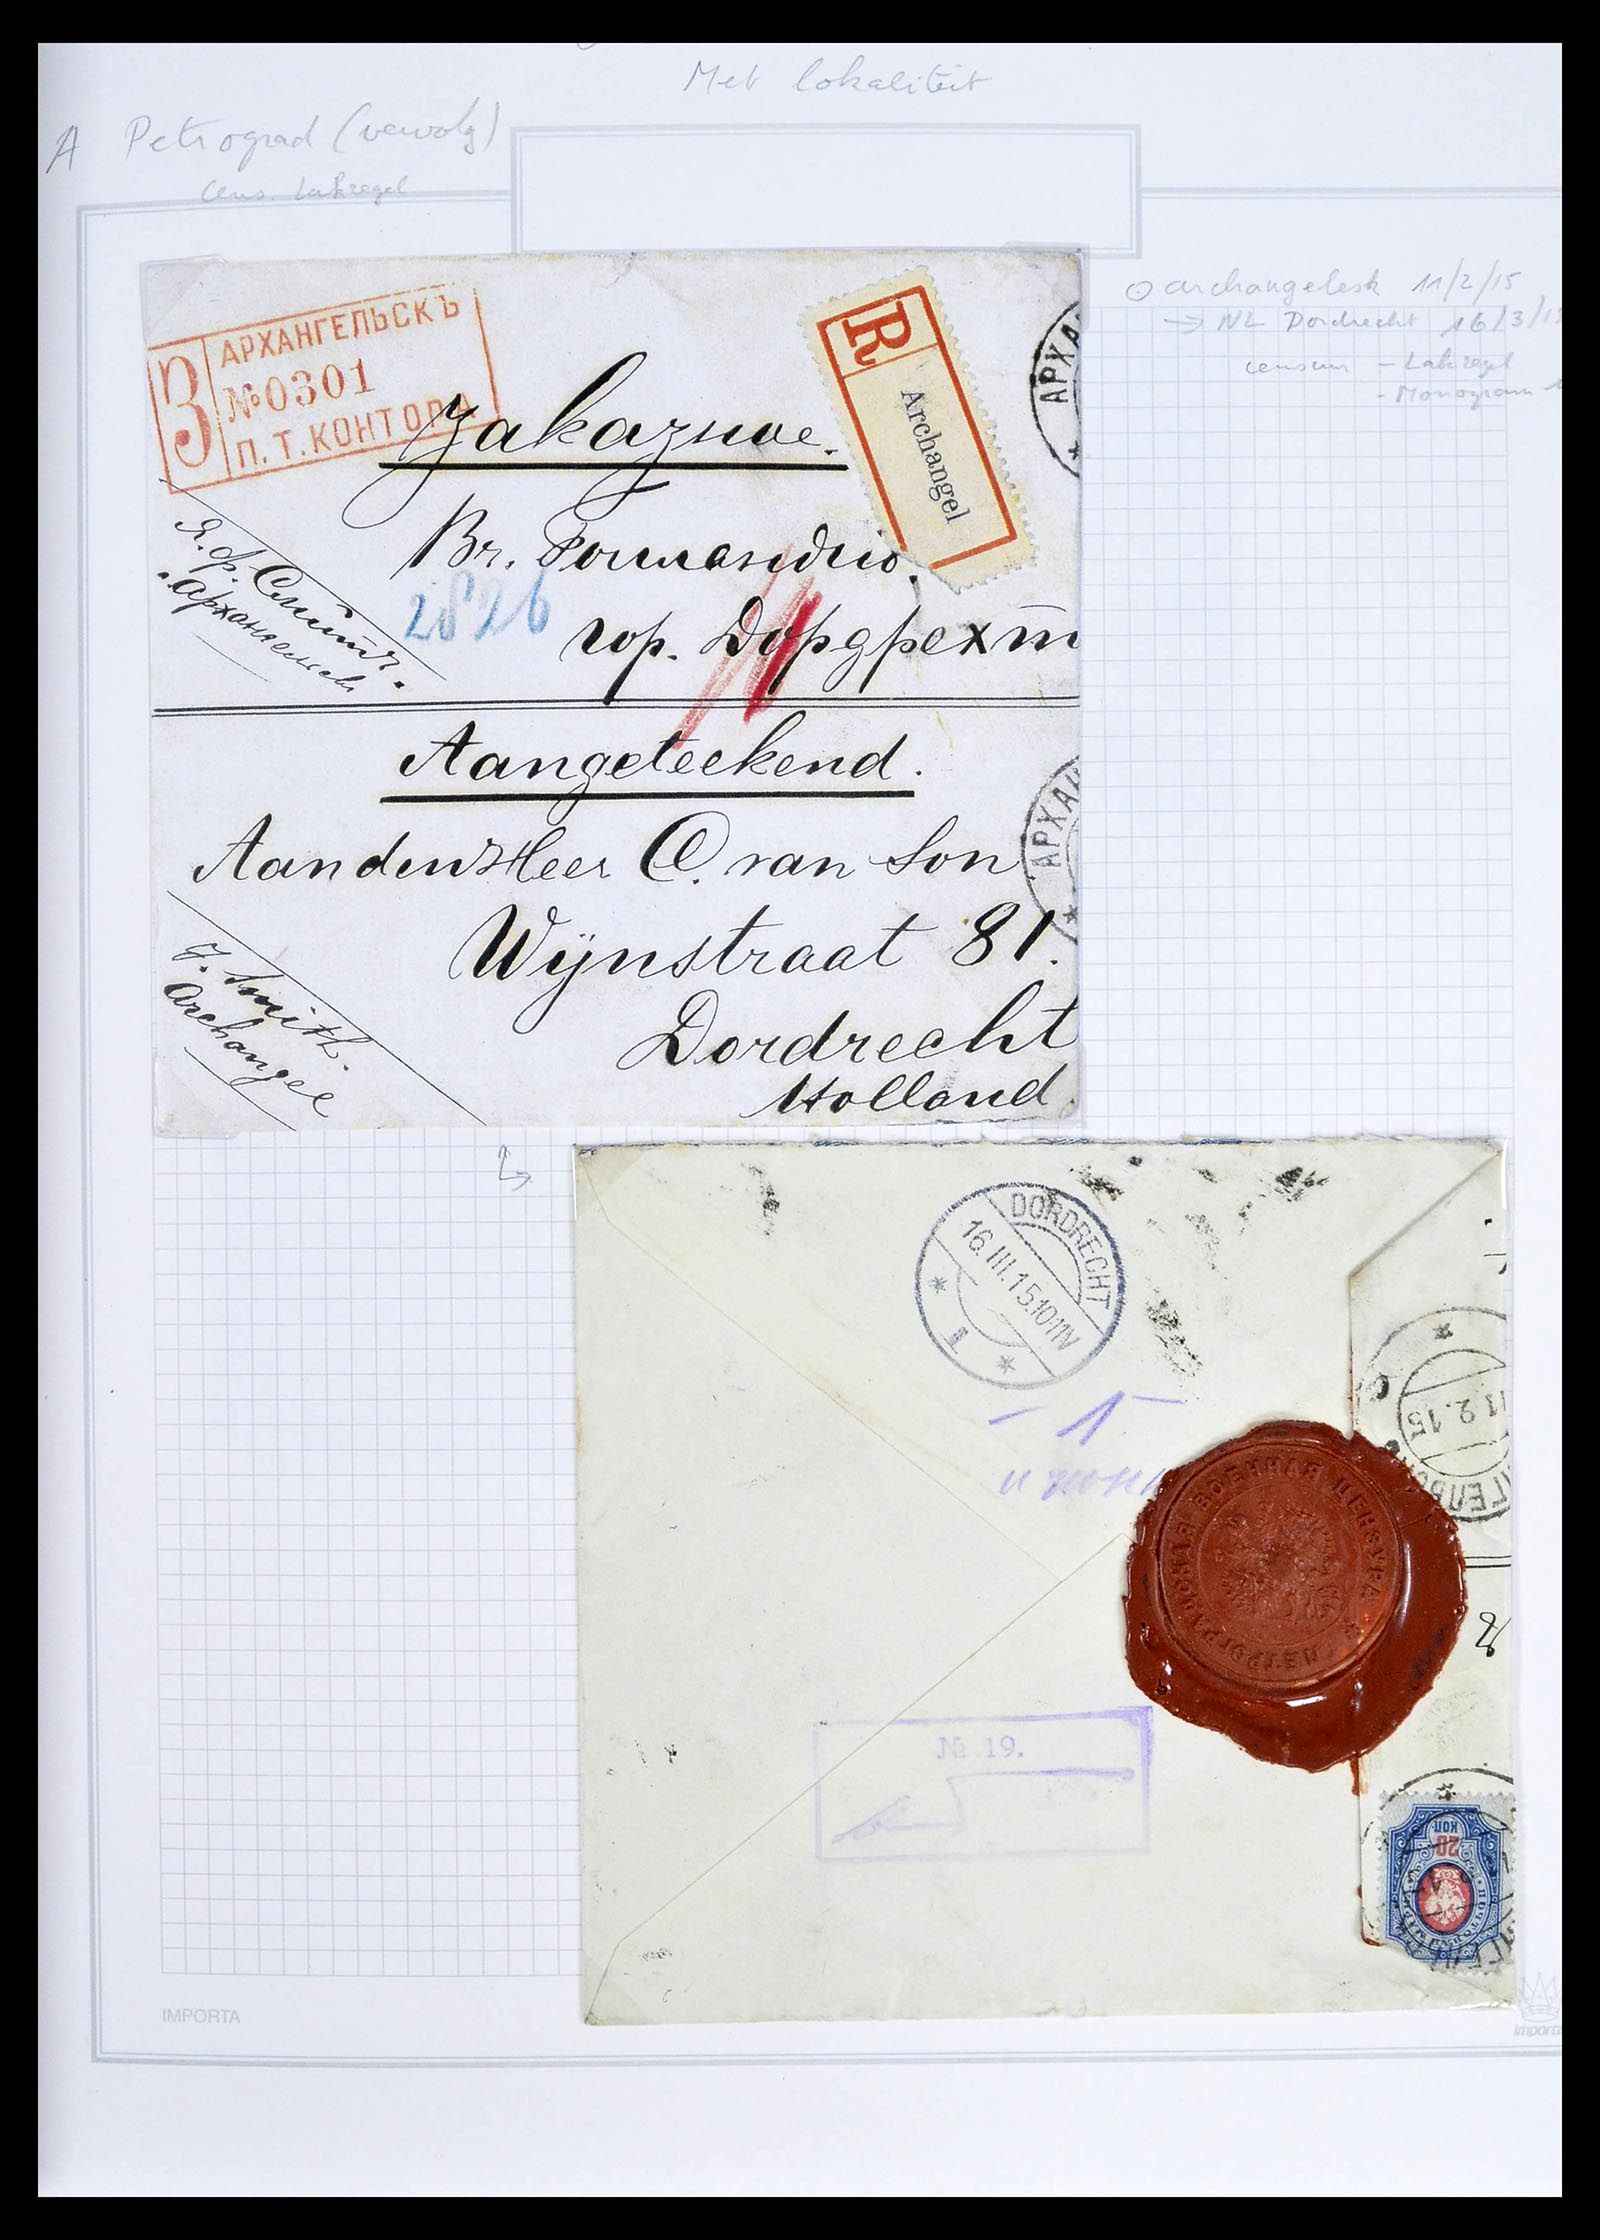 Met lokaliteit
A Petrograd (vervolg)
cens. Lakzegel
archangelesk 11/2/15
→ NL Dordrecht 16/3/15
censuur - Lakzegel
- Monogram
З
АРХАНГЕЛЬСКЪ
№0301
П. Т. КОНТОРА
R
Archangel
АРХАН
Заказное.
Вг. Голландiю.
2826
гор. Дордрехт
Я. Ф. Смитъ.
Архангельск
Aangeteekend.
АРХАН
Aanden Heer C. van Son
Wijnstraat 81.
Dordrecht
Holland.
J. Smith.
Archangel
DORDRECHT
16.III.15.10-11V
1
- 1 -
11.2.15
ПЕТРОГРАДСКАЯ ВОЕННАЯ ЦЕНЗУРА
№ 19.
20
КОП
IMPORTA
importa